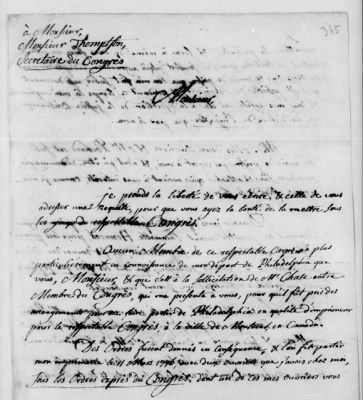 365
à Monsieur,
Monsieur Thompson,
Secretaire du Congrès
Monsieur,
je prends la liberté de vous écrire, & celle de vous
adresser une requete, pour que vous ayez la bonté de la mettre, sous
les yeux du respectable Congrès.
Aucun Membre de ce respectable Corps n'a plus
particulierement en connoissance de mon départ de Philadelphie que
vous, Monsieur, & que c'est à la sollicitation de Mr. Chase autre
Membre du Congrès, qui me presenta à vous, pour qu'il fut pris des
arrangements pour me faire partir de Philadelphie en qualité d'imprimeur
pour le respectable Congrès, à la ville de Montreal en Canada.
Des Ordres furent donnés en consequence, & l'on fit partir
mon imprimerie le 11 Mars 1776 avec deux ouvriers que j'avois chez moi,
sous les Ordres exprès du Congrès, dont un de ces mes ouvriers vous